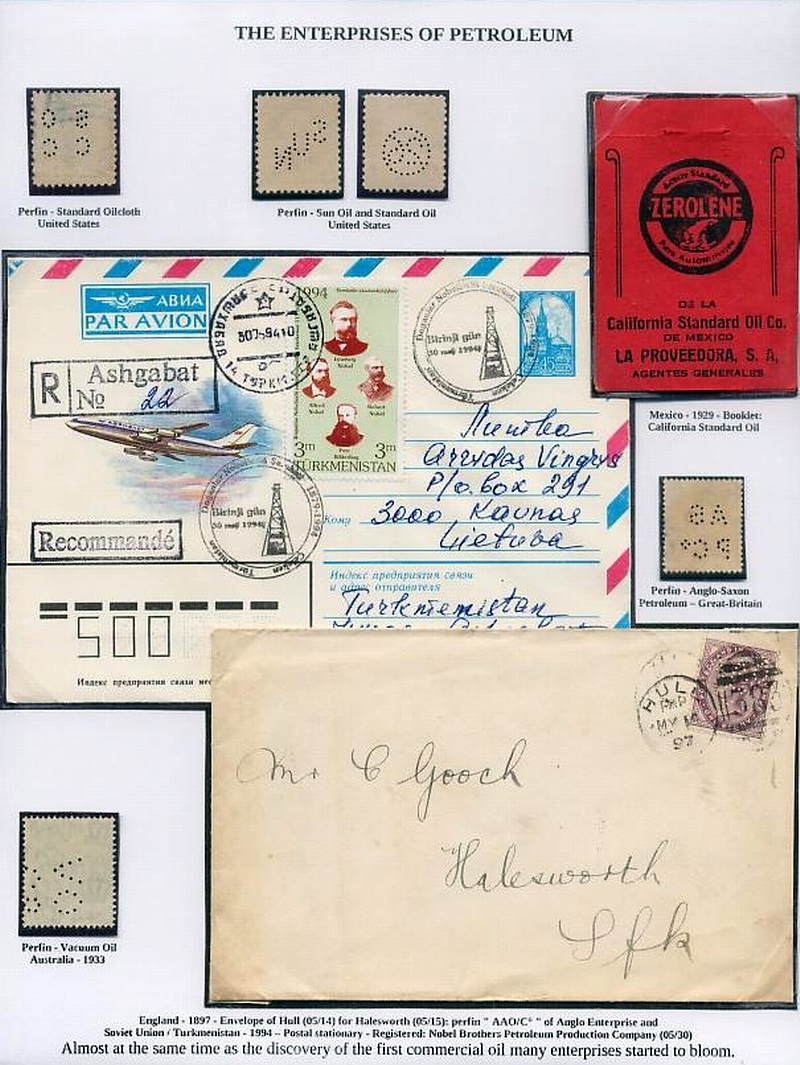 THE ENTERPRISES OF PETROLEUM
Perfin - Standard Oilcloth
United States
SUN
Perfin - Sun Oil and Standard Oil
United States
Aceite Standard
ZEROLENE
Para Automoviles
DE LA
California Standard Oil Co.
DE MEXICO
LA PROVEEDORA, S. A,
AGENTES GENERALES
Mexico - 1929 - Booklet:
California Standard Oil
АВИА
PAR AVION
R
Ashgabat
№ 22
1994
Ludwig
Nobel
Alfred
Nobel
Robert
Nobel
3m 3m
TÜRKMENISTAN
Birinji gün
30 maý 1994ý
45
Литва
Arvydas Vingrys
P/o. box 291
Кому 3000 Kaunas
Lietuva
Recommandé
Birinji gün
30 maý 1994ý
1879-1994
Индекс предприятия связи
и адрес отправителя
Türkmenistan
500
Индекс предприятия связи
Perfin - Anglo-Saxon
Petroleum – Great-Britain
HULL
MY 14
97
383
Mr C Gooch
Halesworth
Sfk
Perfin - Vacuum Oil
Australia - 1933
England - 1897 - Envelope of Hull (05/14) for Halesworth (05/15): perfin " AAO/C° " of Anglo Enterprise and
Soviet Union / Turkmenistan - 1994 – Postal stationary - Registered: Nobel Brothers Petroleum Production Company (05/30)
Almost at the same time as the discovery of the first commercial oil many enterprises started to bloom.